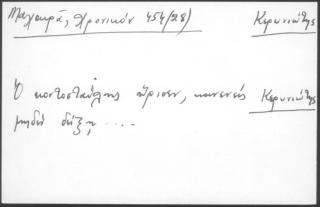 Μαχαιρά, Χρονικόν 454(28) Κερυνιώτης
Ὁ κοντοσταύλης ὥρισεν, κανενός Κερυνιώτης
μηδέν δείξῃ, ....